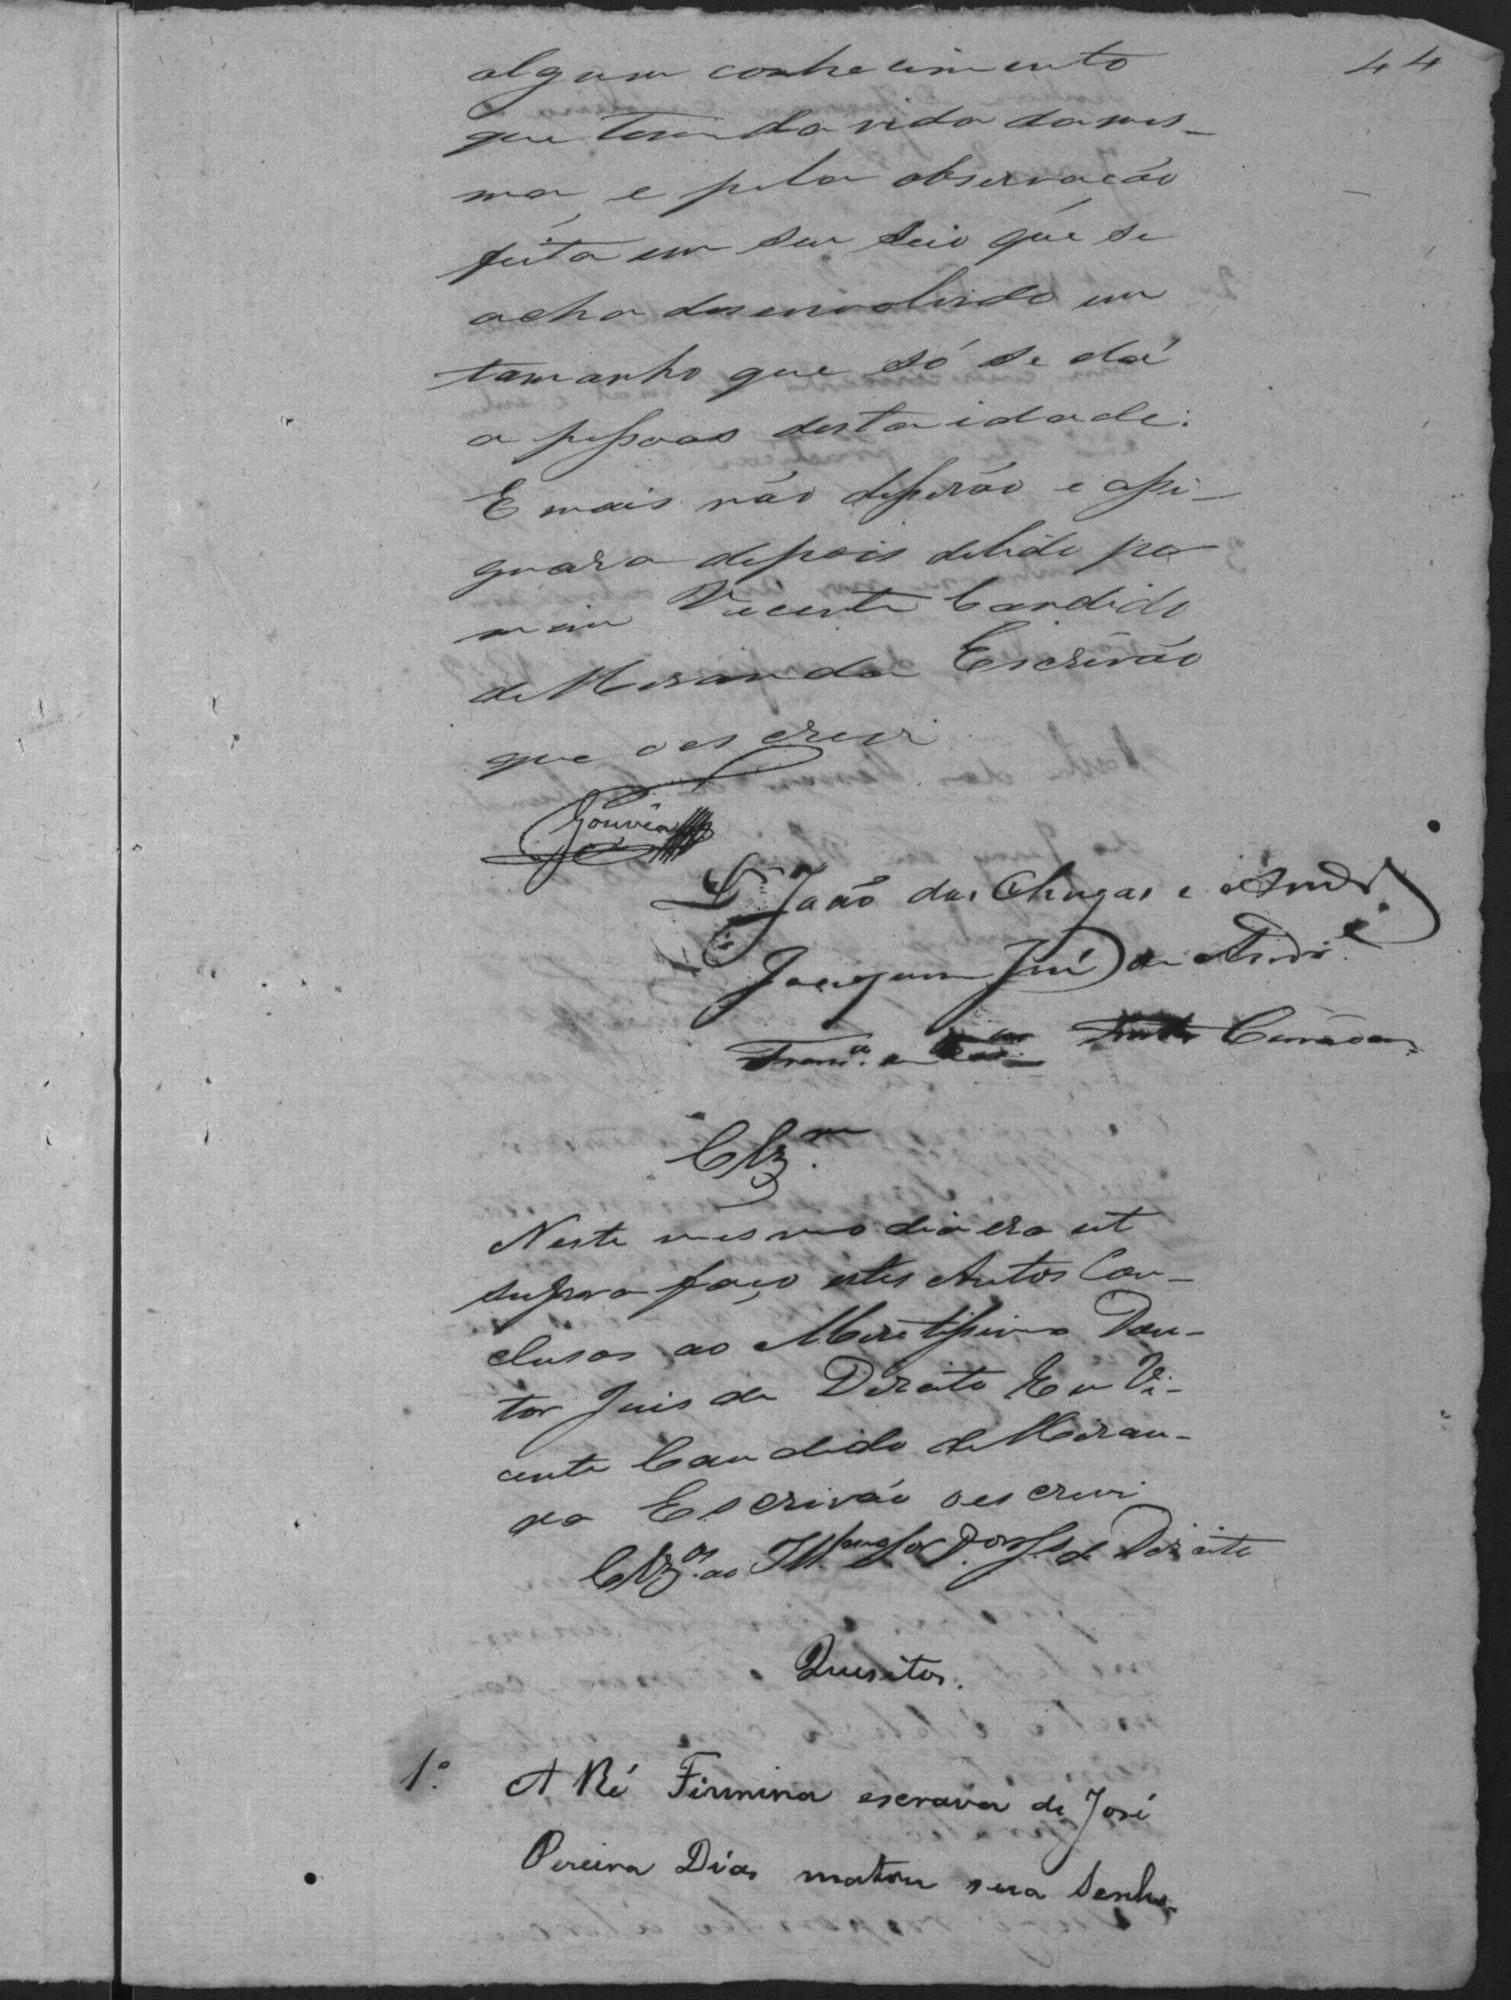 44
algum conhecimento
que tem da vida da mes-
ma, e pela observação
feita em seu seio que se
acha desenvolvido um
tamanho que só se dá
a pessoas desta idade.
E mais não disserão e assi-
gnara depois de lido por
mim Vicente Candido
de Miranda Escrivão
que o escrevi
Gouvêa
João das Chagas e Andrˢ
Joaquim José de Andrᵉ
Franᶜᵒ
Clzᵐ
Neste mesmo dia era ut
supra faço estes Autos Con-
clusos ao Meretissimo Dou-
tor Juis de Direito Eu Vi-
cente Candido de Miran-
da Escrivão o escrevi
Clzᵒˢ ao Illᵐᵒ Sor Dor Js de Direito
Quesitos.
1º A Ré Firmina escrava de José
Pereira Dias matou sua Senho-